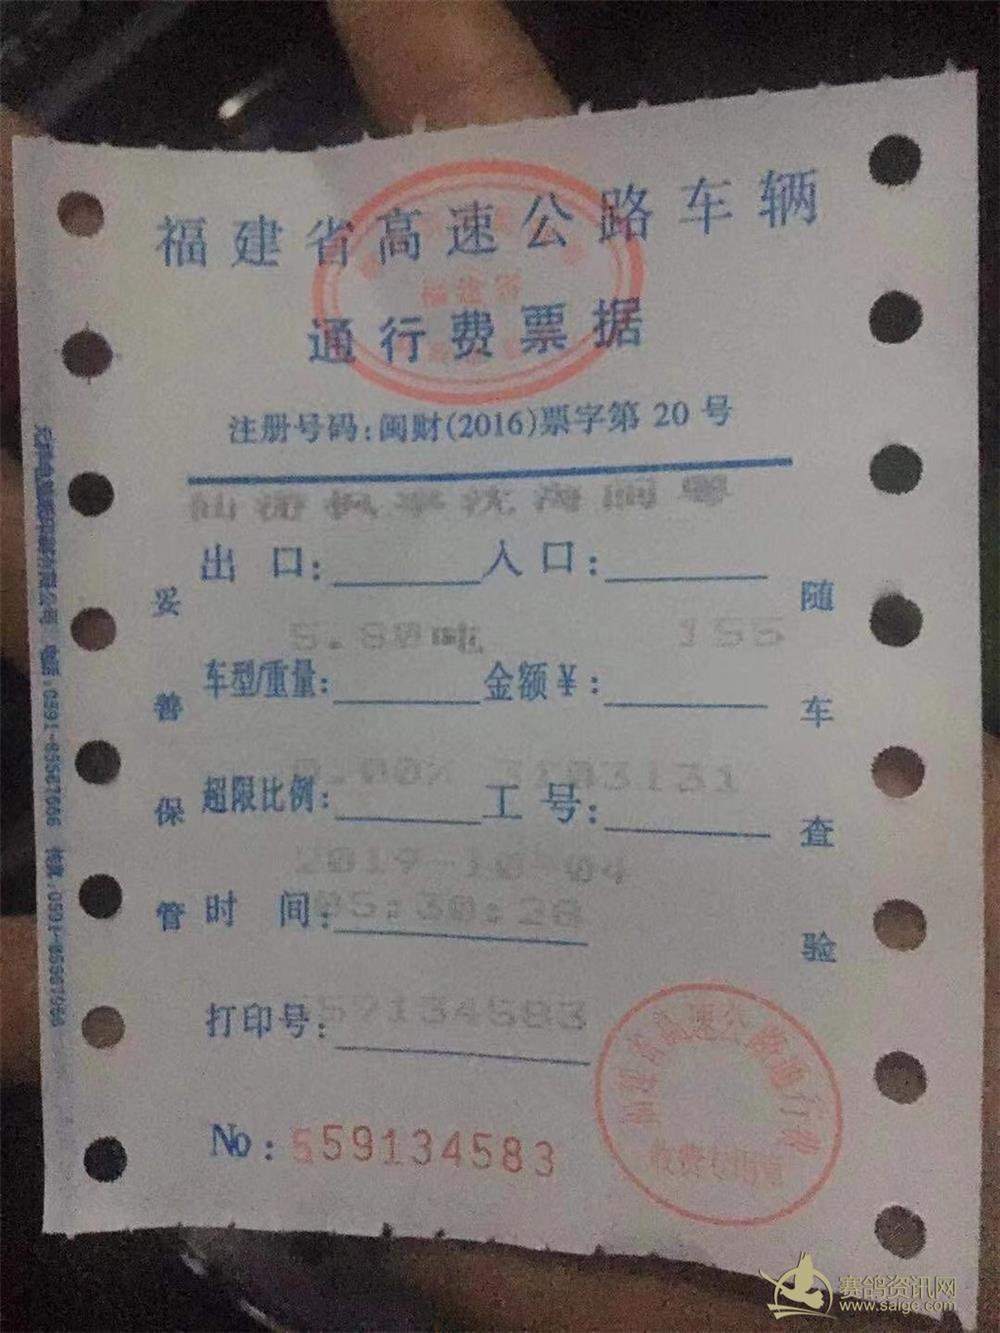 福建省高速公路车辆
福建省
通行费票据
注册号码:闽财(2016)票字第 20 号
仙游枫亭沈海闽粤
出 口: 入 口:
5.80吨 155
车型/重量: 金额￥:
0.00% 3103131
超限比例: 工 号:
2019-10-04
时 间: 05:30:28
打印号: 59134583
No: 559134583
妥善保管
随车查验
电话:0591-85567666
福建省高速公路通行费
收费专用章
赛鸽资讯网
www.saige.com